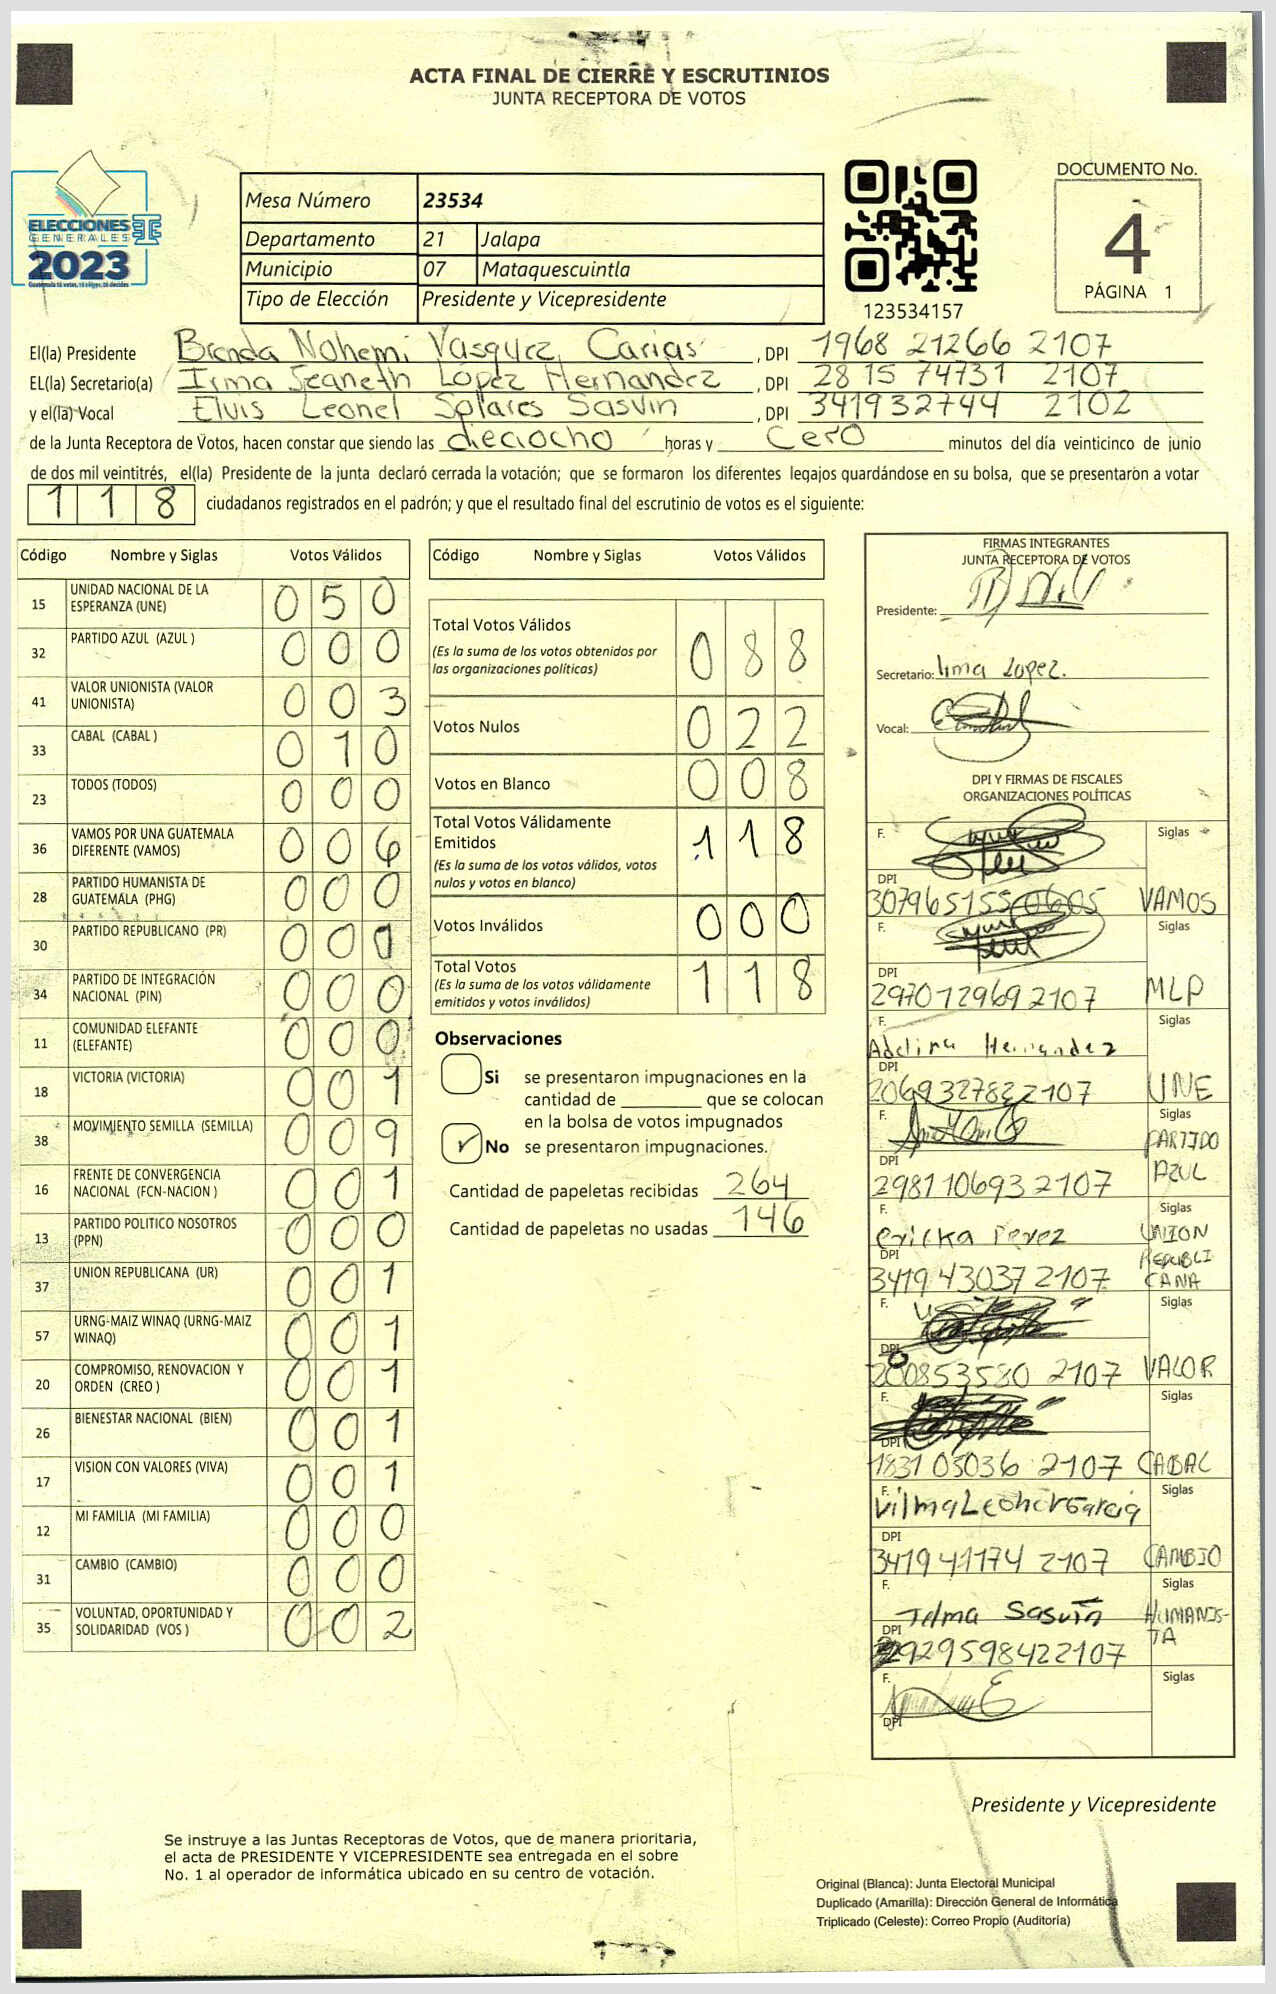 ACTA FINAL DE CIERRE Y ESCRUTINIOS
JUNTA RECEPTORA DE VOTOS
ELECCIONES
GENERALES
2023
Mesa Número 23534
Departamento 21 Jalapa
Municipio 07 Mataquescuintla
Tipo de Elección Presidente y Vicepresidente
123534157
DOCUMENTO No.
4
PÁGINA 1
El(la) Presidente Brenda Nohemi Vasquez Carias, DPI 1968 21266 2107
EL(la) Secretario(a) Irma Jeaneth López Hernandez, DPI 2815 74731 2107
y el(la) Vocal Elvis Leonel Solares Sasvin, DPI 341932744 2102
de la Junta Receptora de Votos, hacen constar que siendo las dieciocho horas y Cero minutos del día veinticinco de junio
de dos mil veintitrés, el(la) Presidente de la junta declaró cerrada la votación; que se formaron los diferentes legajos quardándose en su bolsa, que se presentaron a votar
118 ciudadanos registrados en el padrón; y que el resultado final del escrutinio de votos es el siguiente:
Código Nombre y Siglas Votos Válidos
15 UNIDAD NACIONAL DE LA ESPERANZA (UNE) 050
32 PARTIDO AZUL (AZUL ) 000
41 VALOR UNIONISTA (VALOR UNIONISTA) 003
33 CABAL (CABAL ) 010
23 TODOS (TODOS) 000
36 VAMOS POR UNA GUATEMALA DIFERENTE (VAMOS) 006
28 PARTIDO HUMANISTA DE GUATEMALA (PHG) 000
30 PARTIDO REPUBLICANO (PR) 001
34 PARTIDO DE INTEGRACIÓN NACIONAL (PIN) 000
11 COMUNIDAD ELEFANTE (ELEFANTE) 000
18 VICTORIA (VICTORIA) 001
38 MOVIMIENTO SEMILLA (SEMILLA) 009
16 FRENTE DE CONVERGENCIA NACIONAL (FCN-NACION ) 001
13 PARTIDO POLITICO NOSOTROS (PPN) 000
37 UNION REPUBLICANA (UR) 001
57 URNG-MAIZ WINAQ (URNG-MAIZ WINAQ) 001
20 COMPROMISO, RENOVACION Y ORDEN (CREO ) 001
26 BIENESTAR NACIONAL (BIEN) 001
17 VISION CON VALORES (VIVA) 001
12 MI FAMILIA (MI FAMILIA) 000
31 CAMBIO (CAMBIO) 000
35 VOLUNTAD, OPORTUNIDAD Y SOLIDARIDAD (VOS ) 002
Código Nombre y Siglas Votos Válidos
Total Votos Válidos 088
(Es la suma de los votos obtenidos por
las organizaciones políticas)
Votos Nulos 022
Votos en Blanco 008
Total Votos Válidamente
Emitidos 118
(Es la suma de los votos válidos, votos
nulos y votos en blanco)
Votos Inválidos 000
Total Votos 118
(Es la suma de los votos válidamente
emitidos y votos inválidos)
Observaciones
Si se presentaron impugnaciones en la
cantidad de ________ que se colocan
en la bolsa de votos impugnados
✓ No se presentaron impugnaciones.
Cantidad de papeletas recibidas 264
Cantidad de papeletas no usadas 146
FIRMAS INTEGRANTES
JUNTA RECEPTORA DE VOTOS
Presidente:
Secretario: Irma Lopez.
Vocal:
DPI Y FIRMAS DE FISCALES
ORGANIZACIONES POLÍTICAS
F. Siglas
DPI
307965155 0605 VAMOS
F. Siglas
DPI
297012969 2107 MLP
F. Siglas
Adelina Hernandez
DPI
206932782 2107 UNE
F. Siglas
DPI PARTIDO
298110693 2107 AZUL
F. Siglas
ericka Perez UNION
DPI REPUBLI
3419 43037 2107 CANA
F. Siglas
DPI
280853580 2107 VALOR
F. Siglas
DPI
1831 03036 2107 CABAL
F. Siglas
Vilma Leonor Garcia
DPI
341941174 2107 CAMBIO
F. Siglas
Telma Sasvin HUMANIS-
DPI TA
2929598422107
F. Siglas
DPI
Presidente y Vicepresidente
Se instruye a las Juntas Receptoras de Votos, que de manera prioritaria,
el acta de PRESIDENTE Y VICEPRESIDENTE sea entregada en el sobre
No. 1 al operador de informática ubicado en su centro de votación.
Original (Blanca): Junta Electoral Municipal
Duplicado (Amarilla): Dirección General de Informática
Triplicado (Celeste): Correo Propio (Auditoría)